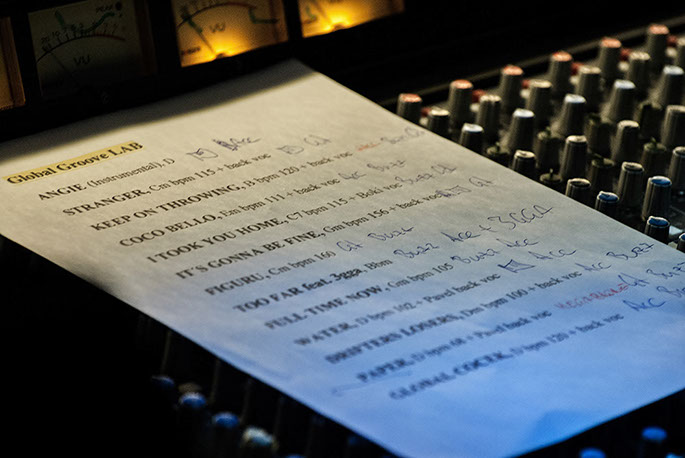 VU
VU
Global Groove LAB
ANGIE (Instrumental), D Acc
STRANGER, Cm bpm 115 + back voc
KEEP ON THROWING, B bpm 120 + back voc Acc Buzz
COCO BELLO, Em bpm 111 + back voc Acc Buzz
I TOOK YOU HOME, C7 bpm 115 + Back voc
IT'S GONNA BE FINE, Gm bpm 156 + back voc
FIGURU, Cm bpm 160 Buzz
TOO FAR feat. 3gga, Bbm Buzz Acc + 3GGA
FULL TIME NOW, Gm bpm 105 Buzz Acc
WATER, D bpm 102 + Pavel back voc Acc
DRIFTERS LOSERS, Dm bpm 100 + back voc Acc Buzz
PAPER, D bpm 68 + Pavel back voc Buzz
GLOBAL COCEK, D bpm 120 + back voc Acc Buzz